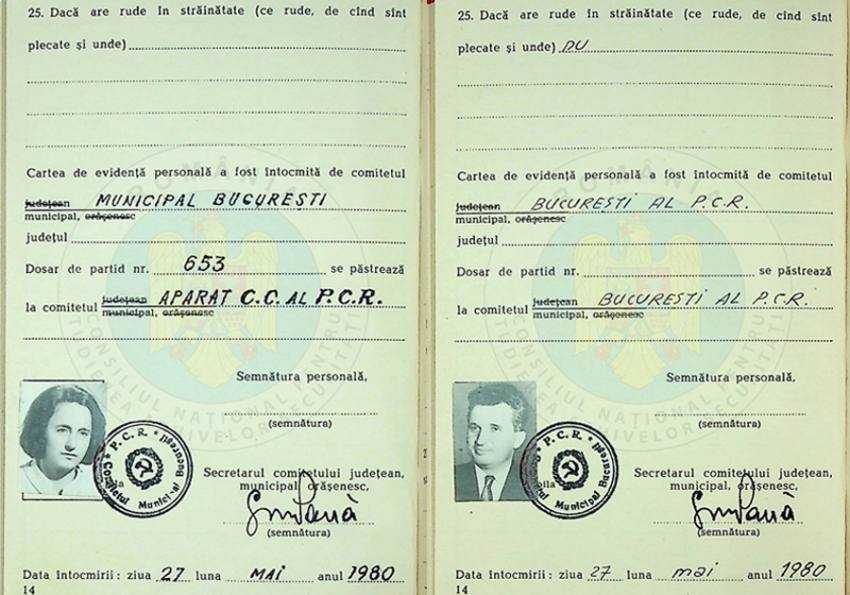 25. Dacă are rude în străinătate (ce rude, de cînd sînt
plecate și unde)
Cartea de evidență personală a fost întocmită de comitetul
județean MUNICIPAL BUCUREȘTI
municipal, orășenesc
județul
Dosar de partid nr. 653 se păstrează
la comitetul județean APARAT C.C. AL P.C.R.
municipal, orășenesc
Semnătura personală,
(semnătura)
P.C.R.
Comitetul Municipal București
Secretarul comitetului județean,
municipal, orășenesc,
(semnătura)
Data întocmirii: ziua 27 luna MAI anul 1980
14
25. Dacă are rude în străinătate (ce rude, de cînd sînt
plecate și unde) NU
Cartea de evidență personală a fost întocmită de comitetul
județean BUCUREȘTI AL P.C.R.
municipal, orășenesc
județul
Dosar de partid nr. se păstrează
la comitetul județean BUCUREȘTI AL P.C.R.
municipal, orășenesc
Semnătura personală,
(semnătura)
P.C.R.
Comitetul Municipal București
Secretarul comitetului județean,
municipal, orășenesc,
(semnătura)
Data întocmirii: ziua 27 luna mai anul 1980
14
ROMÂNIA
CONSILIUL NAȚIONAL PENTRU
STUDIEREA ARHIVELOR SECURITĂȚII